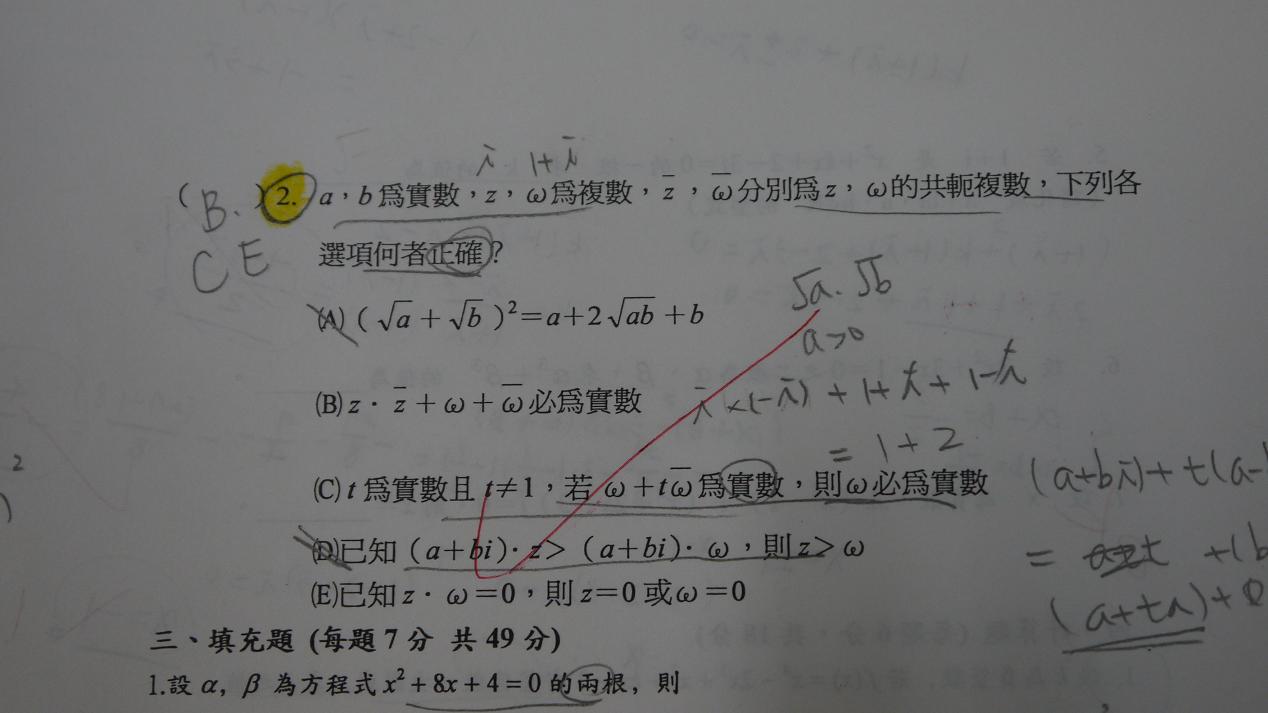 i  1+i
( B. ) 2. a，b為實數，z，ω為複數，z̅，ω̅分別為z，ω的共軛複數，下列各
C E 選項何者正確？
√a．√b
(A) (√a+√b)²=a+2√ab+b
a>0
(B) z．z̅+ω+ω̅必為實數
i×(-i)+1+i+1-i
=1+2
(C) t為實數且t≠1，若ω+tω̅為實數，則ω必為實數
(a+bi)+t(a-
(D)已知(a+bi)．z>(a+bi)．ω，則z>ω
= +(b
(E)已知z．ω=0，則z=0或ω=0
(a+ta)+0
三、填充題 (每題7分 共49分)
1.設α, β 為方程式x²+8x+4=0的兩根，則